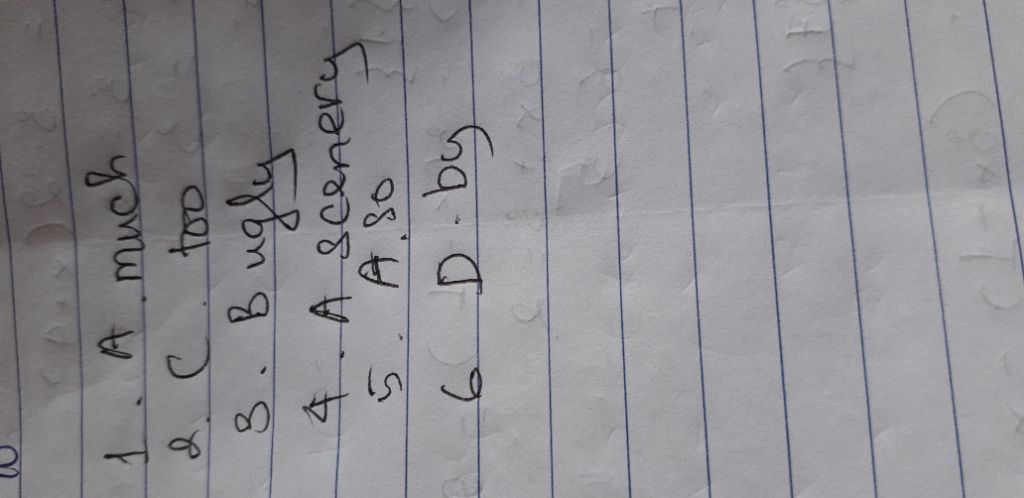 1. A much
2. C. too
3. B ugly
4. A scenery
5. A. so
6 D. by